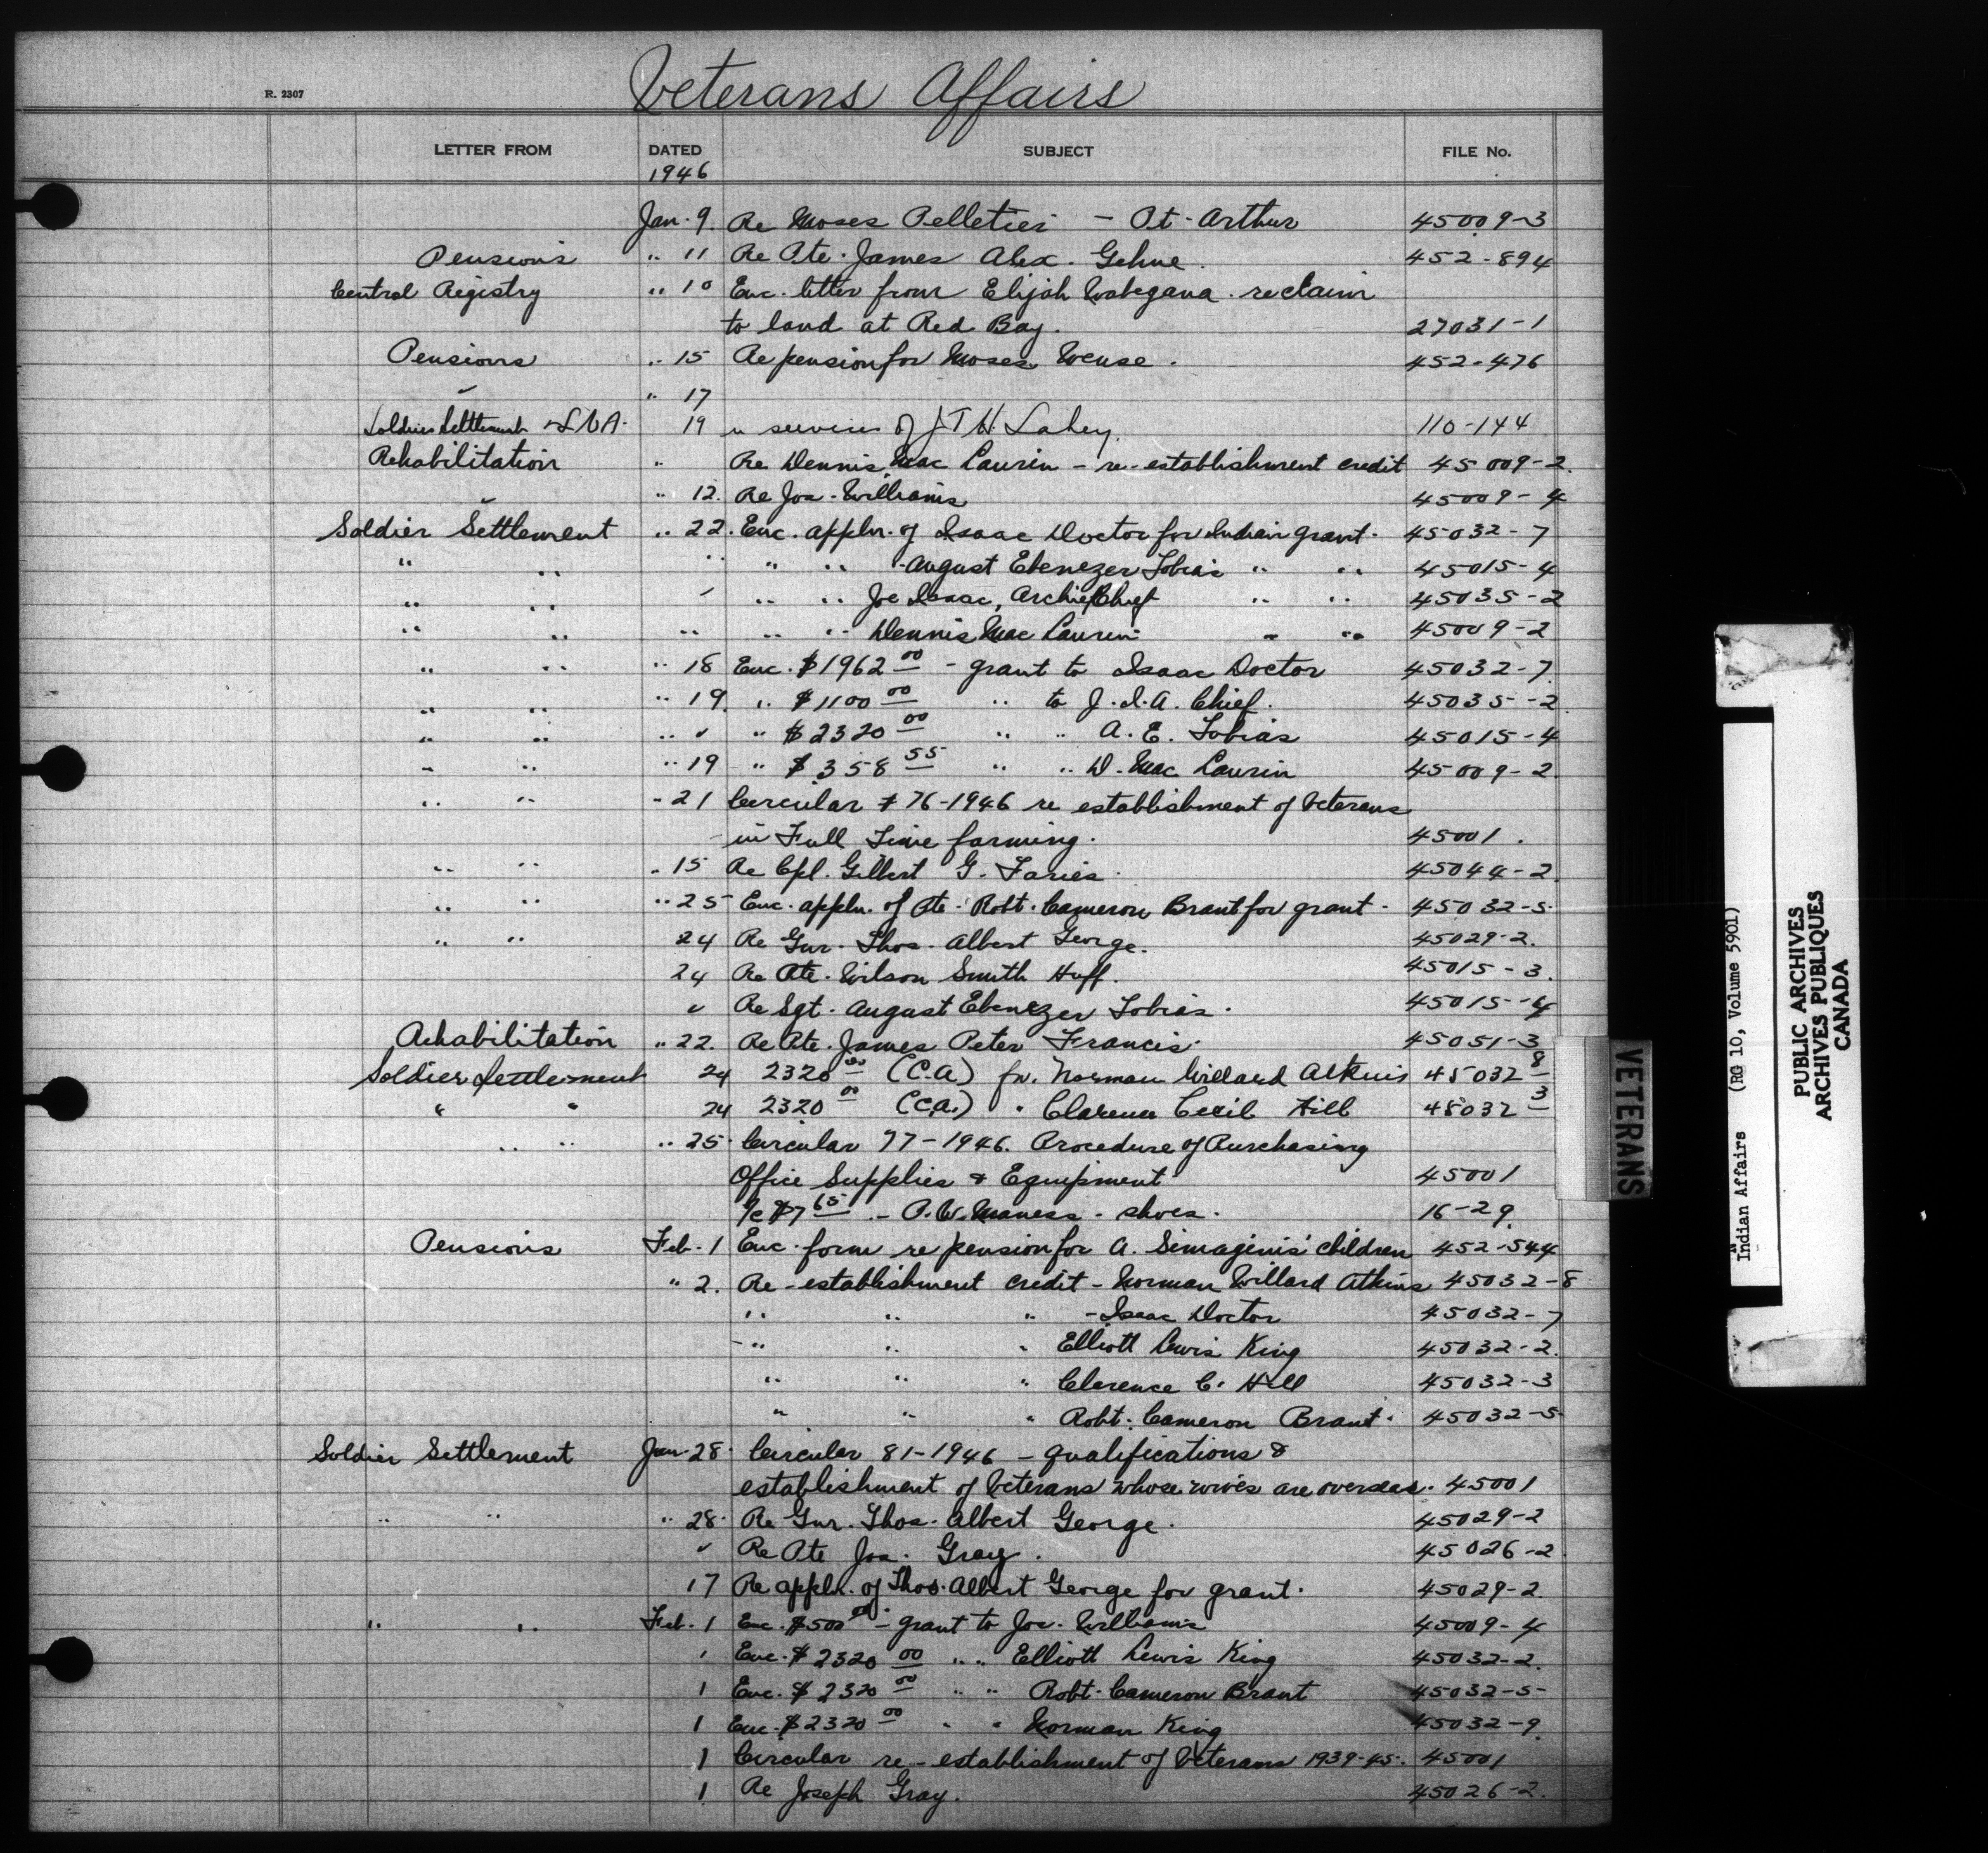 Veterans Affairs
R. 2307
LETTER FROM DATED SUBJECT FILE No.
1946
Jan. 9. Re Moses Pelletier - Pt. Arthur 45009-3
Pensions " 11 Re Pte. James Alex. 452-894
Central Registry " 10 Enc. letter from Elijah re claim
to land at Red Bay. 27031-1
Pensions " 15 Re pension for Moses 452-476
" " 17
Soldier Settlement 19 " services of J T H Lahey. 110-144
Rehabilitation " Re Dennis Mac Laurin - re-establishment credit 45009-2.
" " 12. Re Jos. Williams 45009-4
Soldier Settlement " 22. Enc. appln. of Isaac Doctor for Indian grant. 45032-7
" " " " " August Ebenezer Tobias " " 45015-4
" " " " " Joe Isaac, Archie Chief " " 45035-2
" " " " " Dennis Mac Laurin " " 45009-2
" " " 18 Enc. $1962 00 - grant to Isaac Doctor 45032-7
" " " 19. " $1100 00 " to J. I. A. Chief. 45035-2.
" " " " " $2320 00 " " A. E. Tobias 45015-4
" " " 19 " $358 55 " " D. Mac Laurin 45009-2
" " " 21 Circular # 76-1946 re establishment of Veterans
in Full Time farming. 45001.
" " " 15 Re Cpl. Gilbert G. Faries. 45044-2.
" " " 25 Enc. appln. of Pte. Robt. Cameron Brant for grant. 45032-5
" " 24 Re Gnr. Thos. Albert George. 45029-2.
24 Re Pte. Wilson Smith Huff. 45015-3.
" Re Sgt. August Ebenezer Tobias. 45015-4
Rehabilitation " 22. Re Pte. James Peter Francis. 45051-3
Soldier Settlement 24 2320 00 (C.A) fr. Norman Willard Atkins 45032 8
" " 24 2320 00 (C.A.) " Clarence Cecil Hill 45032 3
" " " 25. Circular 77-1946. Procedure of Purchasing
Office Supplies & Equipment 45001
$7 65 - P. W. Maness - shoes. 16-29.
Pensions Feb. 1 Enc. form re pension for A. Simaginis' children 452-544
" 2. Re-establishment credit - Norman Willard Atkins 45032-8
" " " - Isaac Doctor 45032-7
" " " Elliott Lewis King 45032-2.
" " " Clarence C. Hill 45032-3
" " " Robt. Cameron Brant. 45032-5
Soldier Settlement Jan. 28. Circular 81-1946 - qualifications &
establishment of Veterans whose wives are overseas. 45001
" " " 28. Re Gnr. Thos. Albert George. 45029-2
" Re Pte Jos. Gray. 45026-2
17 Re appln. of Thos. Albert George for grant. 45029-2.
" " Feb. 1 Enc. $500 00 - grant to Jos. Williams 45009-4
1 Enc. $2320 00 " " Elliott Lewis King 45032-2.
1 Enc. $2320 00 " " Robt. Cameron Brant 45032-5
1 Enc. $2320 00 " " Norman King 45032-9.
1 Circular re-establishment of Veterans 1939-45. 45001
1 Re Joseph Gray. 45026-2.
VETERANS
Indian Affairs (RG 10, Volume 5901)
PUBLIC ARCHIVES
ARCHIVES PUBLIQUES
CANADA